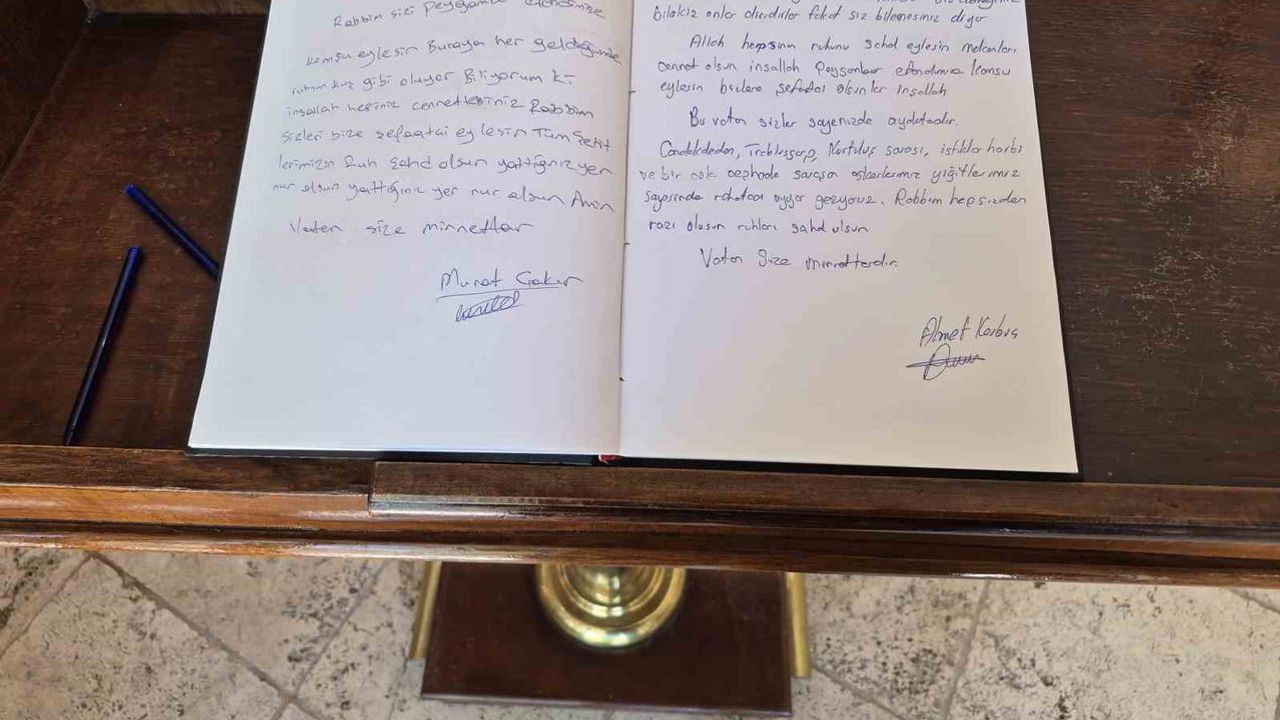 Rabbim sizi Peygamber efendimize
komsu eylesin Buraya her geldiğimde
ruhum kuş gibi oluyor Biliyorum ki
insallah hepiniz cennetliksiniz Rabbim
sizleri bize şefaatçi eylesin Tüm Şehit
lerimizin Ruh Şahd olsun yattığınız yer
nur olsun yattığınız yer nur olsun Amin
Vatan size minnettar
Murat Çakır
Bilakis onlar diridirler fakat siz bilemezsiniz diyor
Allah hepsinin ruhunu şahd eylesin mekanları
cennet olsun insallah Peygamber efendimize komsu
eylesin bizlere şefaatçi olsunlar inşallah
Bu vatan sizler sayenizde ayaktadır.
Çanakkaleden, Trablusgarp, Kurtuluş savaşı, istiklar harbi
ve bir çok cephede savaşan askerlerimiz yiğitlerimiz
sayesinde rahatça uyuyor geziyoruz. Rabbim hepsinden
razı olsun ruhları şahd olsun
Vatan Size minnettardır.
Ahmet Karbış